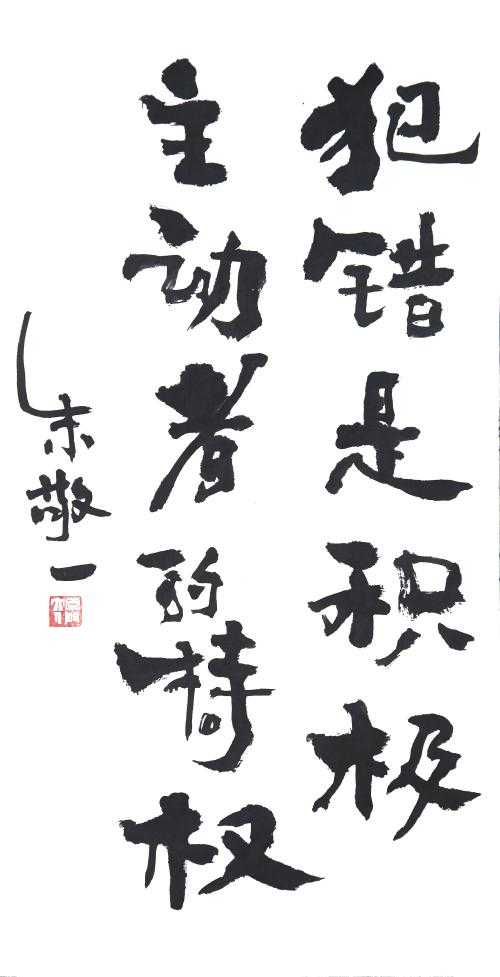 犯错是积极
主动者的特权
朱敬一